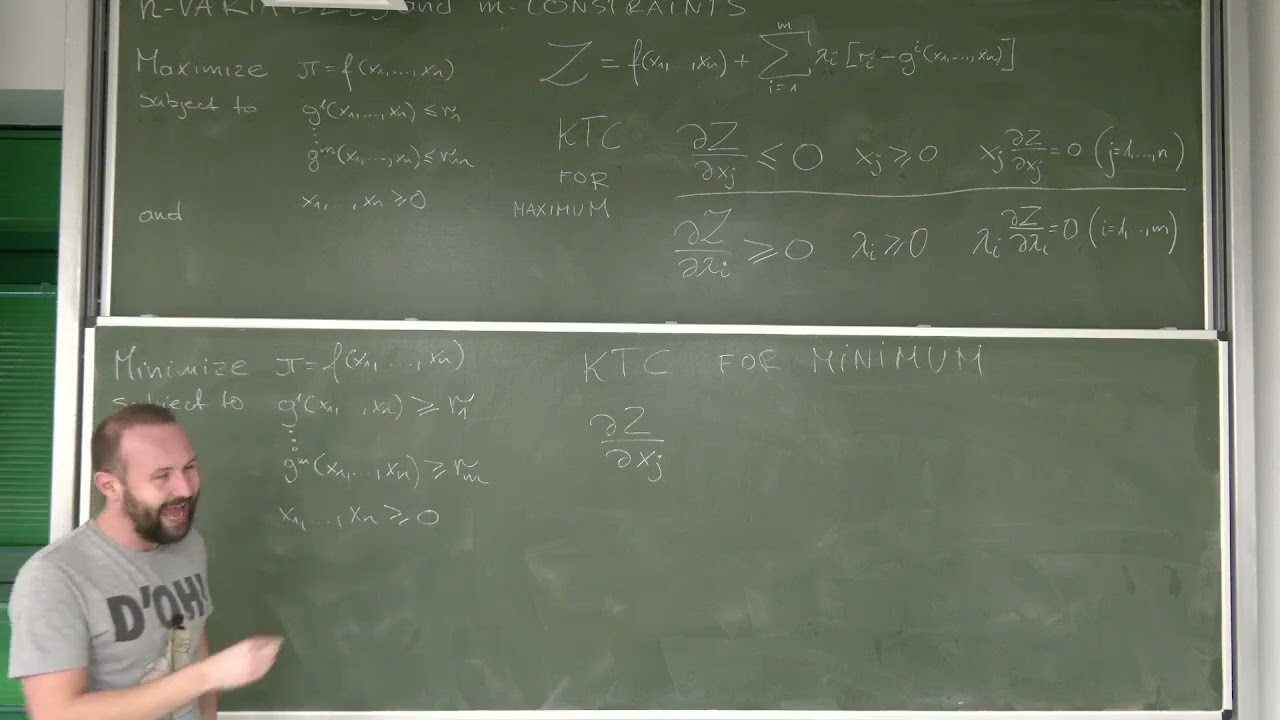 n-VARIABLES and m-CONSTRAINTS
Maximize π = f(x₁,...,xₙ)
Subject to g¹(x₁,...,xₙ) ≤ r₁
⋮
gᵐ(x₁,...,xₙ) ≤ rₘ
and x₁,...,xₙ ≥ 0
Z = f(x₁...,xₙ) + ∑ᵢ₌₁ᵐ λᵢ [rᵢ - gⁱ(x₁,...,xₙ)]
KTC FOR MAXIMUM
∂Z/∂xⱼ ≤ 0 xⱼ ≥ 0 xⱼ ∂Z/∂xⱼ = 0 (j=1,...,n)
∂Z/∂λᵢ ≥ 0 λᵢ ≥ 0 λᵢ ∂Z/∂λᵢ = 0 (i=1,...,m)
Minimize π = f(x₁,...,xₙ)
Subject to g¹(x₁, ,xₙ) ≥ r₁
⋮
gᵐ(x₁,...,xₙ) ≥ rₘ
x₁,...,xₙ ≥ 0
KTC FOR MINIMUM
∂Z/∂xⱼ
D'OH!